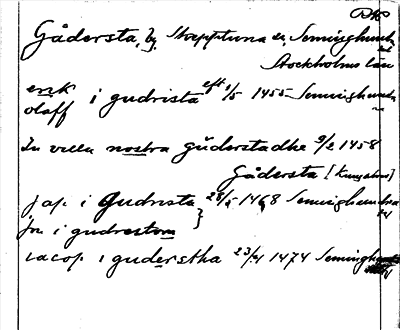 Gådersta, by, Stäpptuna sn, Seminghundra
Stockholms län
erik i gudrista eft 1/5 1455 Seminghundra
olaff
In villa nostra guderstadhe 9/2 1458
Gådersta [Kungshmn]
jap. i Gudrista 28/5 1468 Seminghundra
jon i gudrestom
iacop i guderstha 23/4 1474 Seminghundra